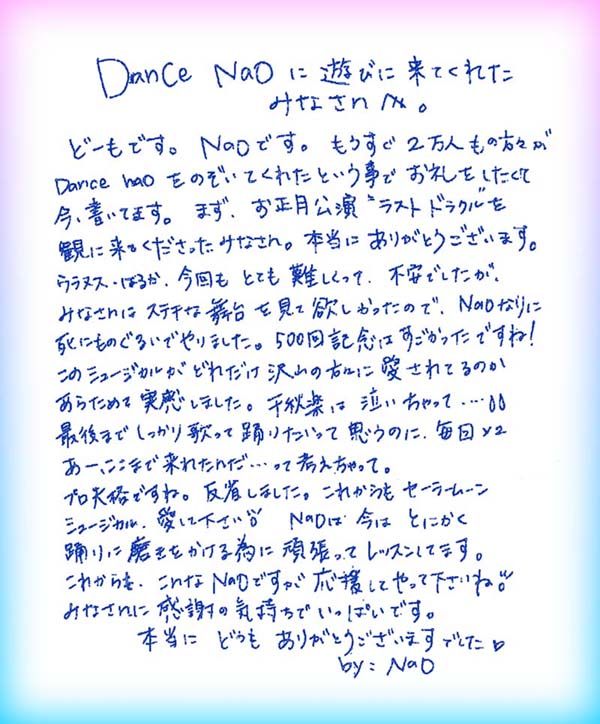 Dance NaO に遊びに来てくれた
みなさまへ。
どーもです。NaOです。もうすぐ2万人もの方々が
Dance naO をのぞいてくれたという事でお礼をしたくて
今、書いてます。まず、お正月公演“ラストドラクル”を
観に来てくださったみなさん。本当にありがとうございます。
ウラヌス・はるか、今回もとても難しくって、不安でしたが、
みなさんにステキな舞台を見て欲しかったので、NaOなりに
死にものぐるいでやりました。500回記念はすごかったですね!
このミュージカルがどれだけ沢山の方々に愛されてるのか
あらためて実感しました。千秋楽は泣いちゃって・・・・
最後までしっかり歌って踊りたいって思うのに、毎回×2
あー、ここまで来れたんだ・・・って考えちゃって。
プロ失格ですね。反省しました。これからもセーラームーン
ミュージカル、愛して下さい NaOは今はとにかく
踊りに磨きをかける為に頑張ってレッスンしてます。
これからも、こんなNaOですが応援してやって下さいね
みなさんに感謝の気持ちでいっぱいです。
本当にどうもありがとうございますでした
by: NaO